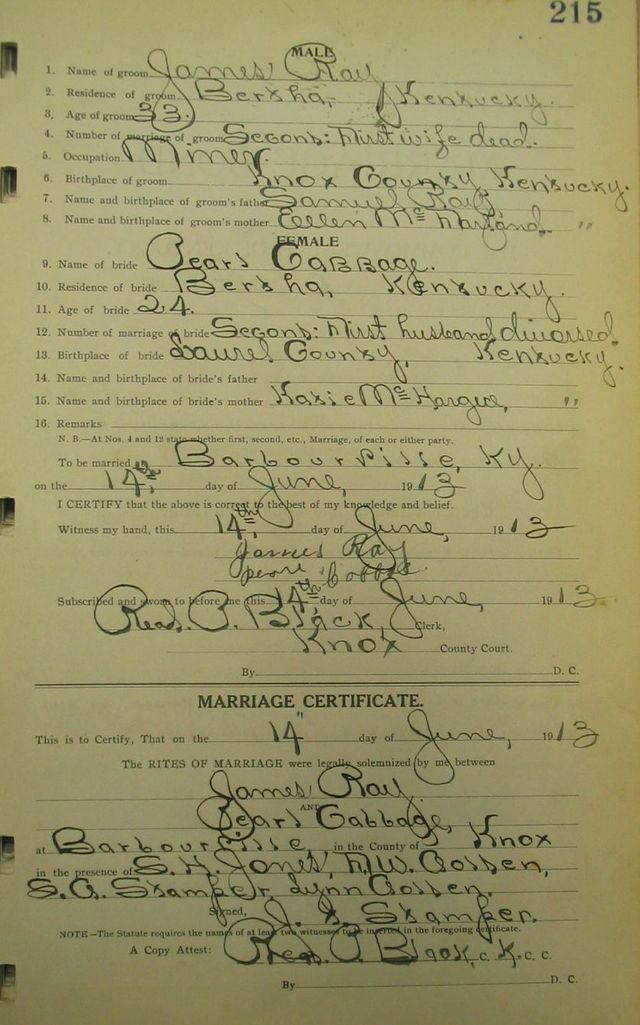 215
MALE
1. Name of groom James Ray
2. Residence of groom Bertha, Kentucky.
3. Age of groom 33.
4. Number of marriage of groom Second: First wife dead.
5. Occupation Miner.
6. Birthplace of groom Knox County, Kentucky.
7. Name and birthplace of groom's father Samuel Ray,
8. Name and birthplace of groom's mother Ellen Mc "
FEMALE
9. Name of bride Pearl Cabbage.
10. Residence of bride Bertha, Kentucky.
11. Age of bride 24.
12. Number of marriage of bride Second: First husband divorsed.
13. Birthplace of bride Laurel County, Kentucky.
14. Name and birthplace of bride's father
15. Name and birthplace of bride's mother Katie McHargue, "
16. Remarks
N. B.—At Nos. 4 and 12 state whether first, second, etc., Marriage, of each or either party.
To be married in Barbourville, Ky.
on the 14th, day of June, 1913
I CERTIFY that the above is correct to the best of my knowledge and belief.
Witness my hand, this 14th, day of June, 1913
James Ray
Subscribed and sworn to before me this 14th, day of June, 1913
Read. P. Black, Clerk,
Knox County Court.
By D. C.
MARRIAGE CERTIFICATE.
This is to Certify, That on the 14" day of June, 1913
The RITES OF MARRIAGE were legally solemnized by me between
James Ray
AND
Pearl Cabbage,
at Barbourville, in the County of Knox
in the presence of S. H. Jones, N.W. Golden,
S. A. Stamper, Lynn Golden.
Signed, J. Stamper.
NOTE—The Statute requires the names of at least two witnesses to be inserted in the foregoing certificate.
A Copy Attest: Read. P. Black, C. K. C. C.
By D. C.